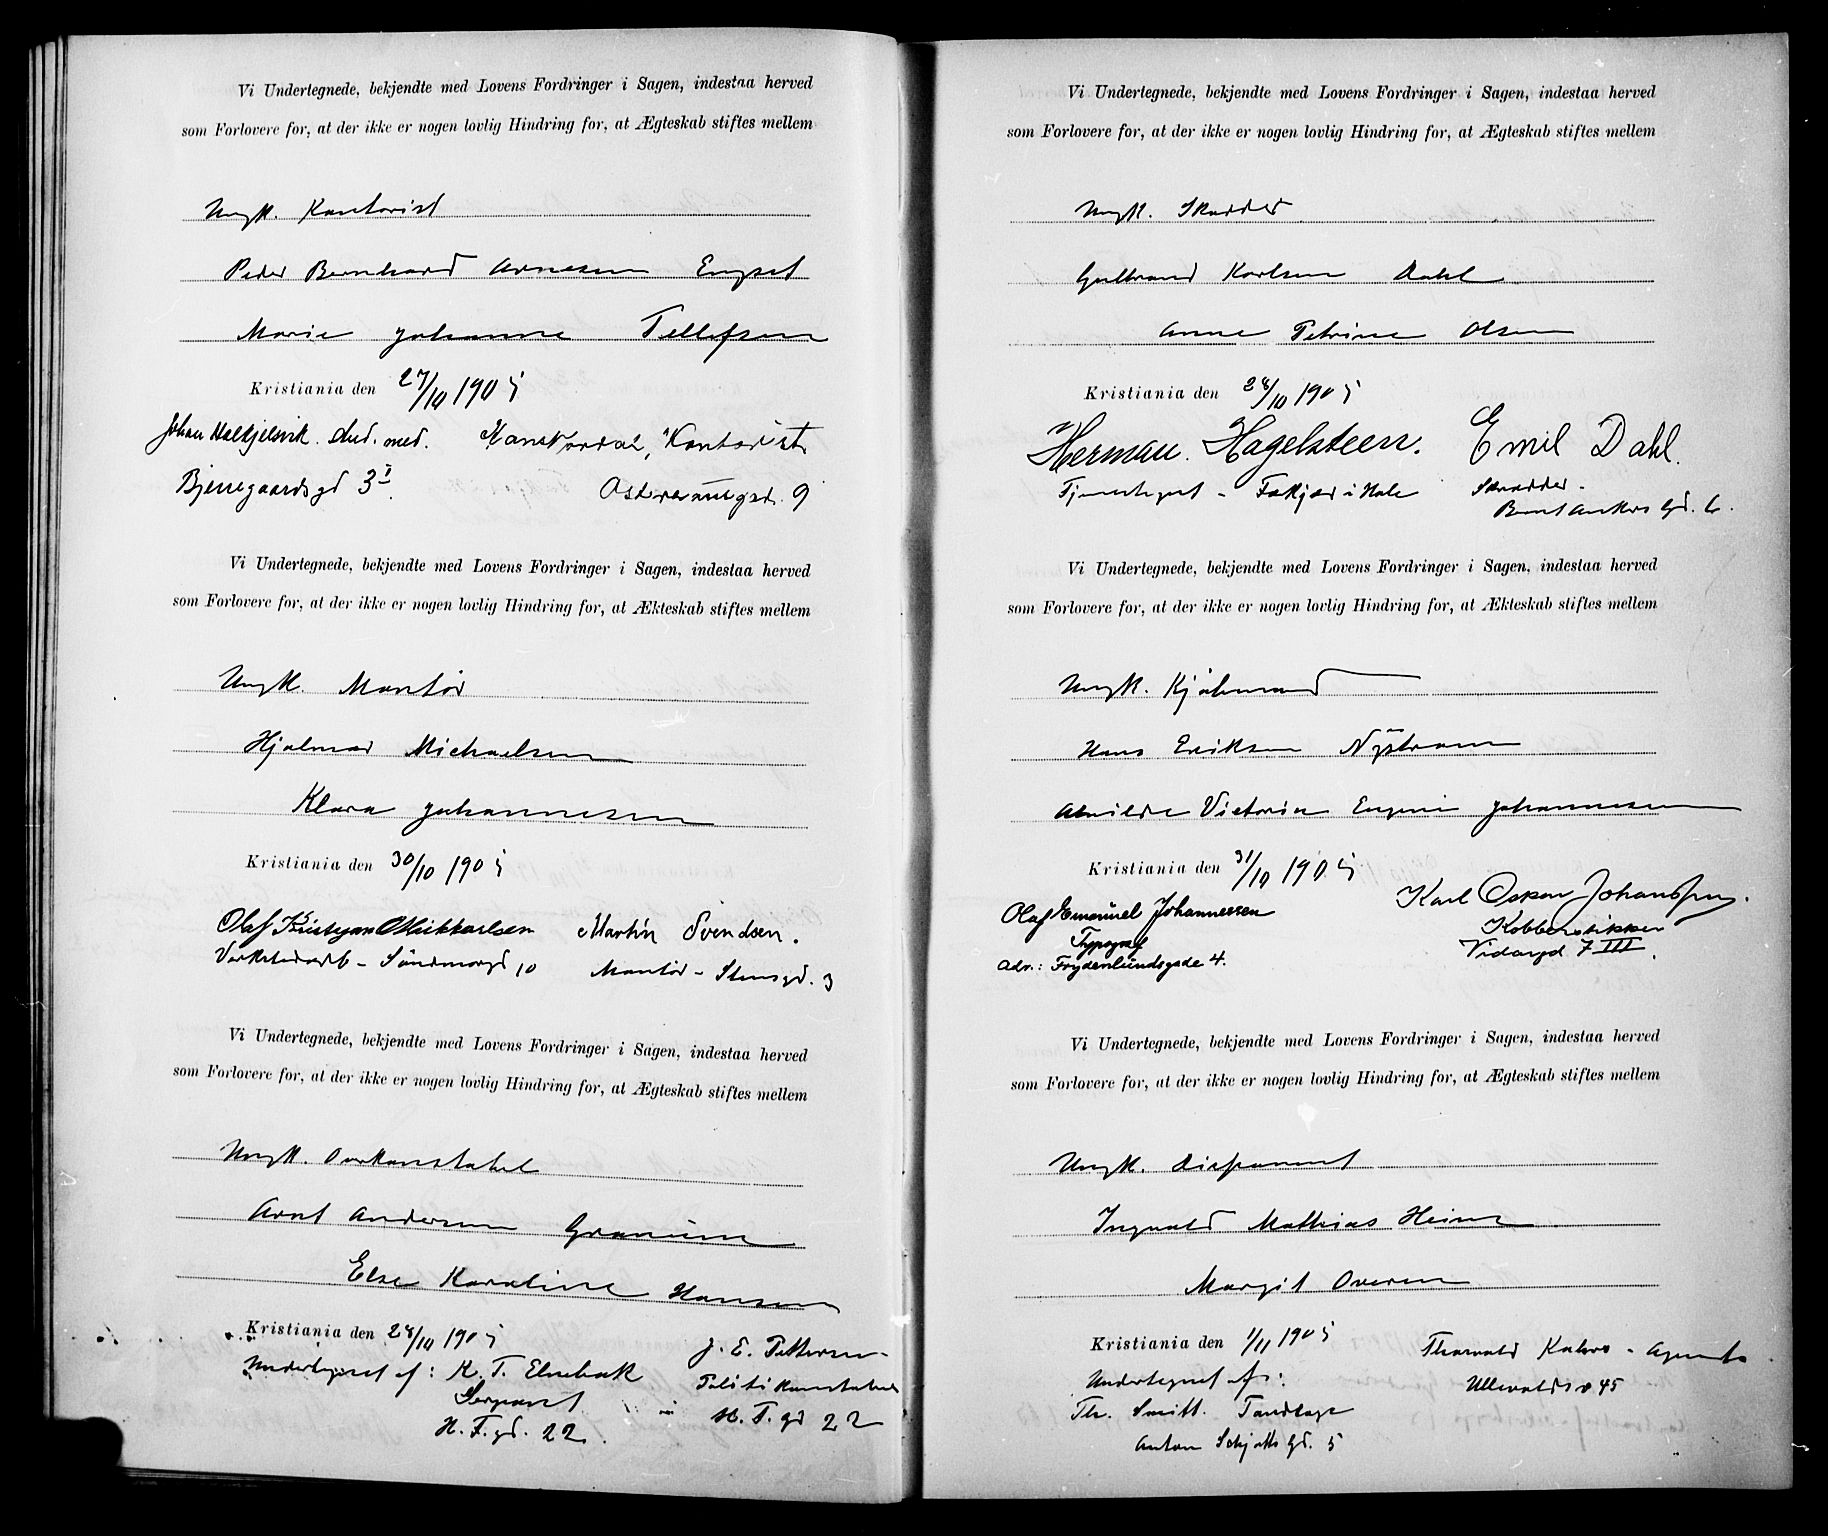 Vi Undertegnede, bekjendte med Lovens Fordringer i Sagen, indestaa herved
som Forlovere for, at der ikke er nogen lovlig Hindring for, at Ægteskab stiftes mellem
Ungk. Kontorist
Peder Bernhard Arnesen Engset
Marie Johanne Tellefsen
Kristiania den 27/10 1905
Johan Halkjelsvik. stud. med. Hans Kontorist
Bjerregaardsgd 3 I. gd. 9
Vi Undertegnede, bekjendte med Lovens Fordringer i Sagen, indestaa herved
som Forlovere for, at der ikke er nogen lovlig Hindring for, at Ækteskab stiftes mellem
Ungk. Montør
Hjalmar Michaelsen
Klara Johannesen
Kristiania den 30/10 1905
Olaf Kristian Mikkelsen Martin Svendsen.
Verkstedarb - Söndmorgd 10 Montør - Stensgd. 3
Vi Undertegnede, bekjendte med Lovens Fordringer i Sagen, indestaa herved
som Forlovere for, at der ikke er nogen lovlig Hindring for, at Ægteskab stiftes mellem
Ungk. Overkonstabel
Arnt Andersen Granum
Else Karoline Hansen
Kristiania den 28/10 1905
Undertegnet af: K. T. Elsebak J. E. Pettersen -
Sergeant Politikonstabel
H. T. gd. 22. H. T. gd 22
Vi Undertegnede, bekjendte med Lovens Fordringer i Sagen, indestaa herved
som Forlovere for, at der ikke er nogen lovlig Hindring for, at Ægteskab stiftes mellem
Ungk. Skrædder
Gulbrand Karlsen Dahl
Anne Petrine Olsen
Kristiania den 28/10 1905
Herman. Hagelsteen. Emil Dahl.
- i Hole Skrædder -
Bernt Ankers Gd. 6.
Vi Undertegnede, bekjendte med Lovens Fordringer i Sagen, indestaa herved
som Forlovere for, at der ikke er nogen lovlig Hindring for, at Ækteskab stiftes mellem
Ungk. Kjøbmand
Hans Eriksen Nyström
Alvilde Victoria Eugenie Johannesen
Kristiania den 31/10 1905
Olaf Emanuel Johannessen Karl Oskar Johanssen.
Typograf Kobberstikker
Adr.: Frydenlundsgade 4. Vidargd 7 III.
Vi Undertegnede, bekjendte med Lovens Fordringer i Sagen, indestaa herved
som Forlovere for, at der ikke er nogen lovlig Hindring for, at Ægteskab stiftes mellem
Ungk. Disponent
Ingvald Mathias Heim
Margit Overen
Kristiania den 1/11 1905 Thorvald - Agent
Undertegnet af: Ullevoldsv 45
Th. Smitt. Tandlæge
Anton Schjøtts Gd. 5